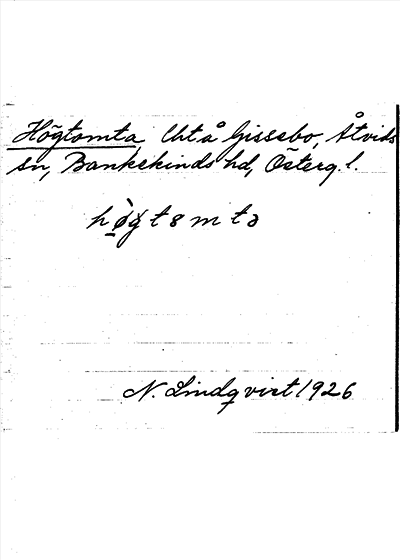 Högtomta, Uht å Gissebo, Åtvids
sn, Bankekinds hd, Österg. l.
hø̀gtɜmtə
N. Lindqvist 1926